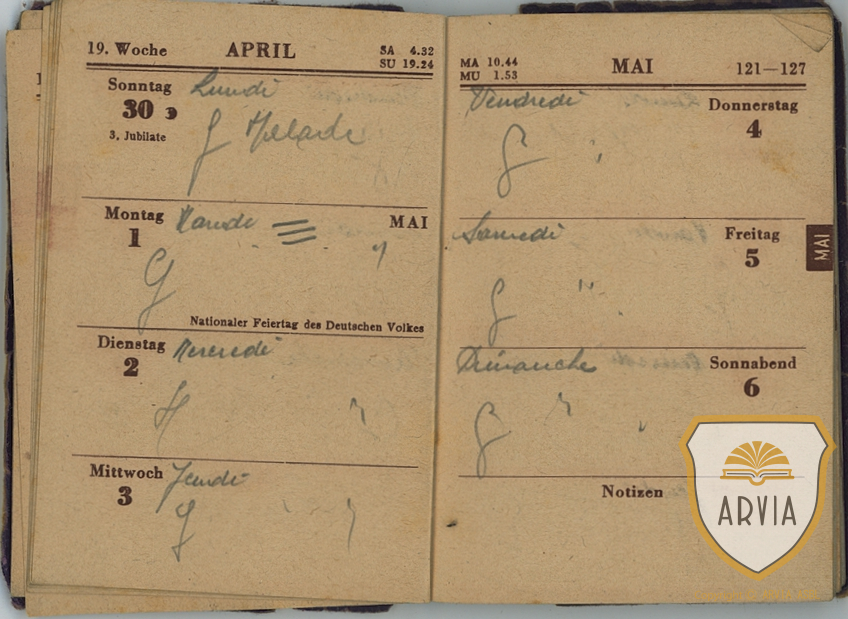 19. Woche APRIL SA 4.32
SU 19.24
Sonntag Lundi
30
3. Jubilate
Malade
Montag Mardi MAI
1
Nationaler Feiertag des Deutschen Volkes
Dienstag Mercredi
2
Mittwoch Jeudi
3
MA 10.44 MAI 121—127
MU 1.53
Vendredi Donnerstag
4
Samedi Freitag
5
MAI
Dimanche Sonnabend
6
Notizen
ARVIA